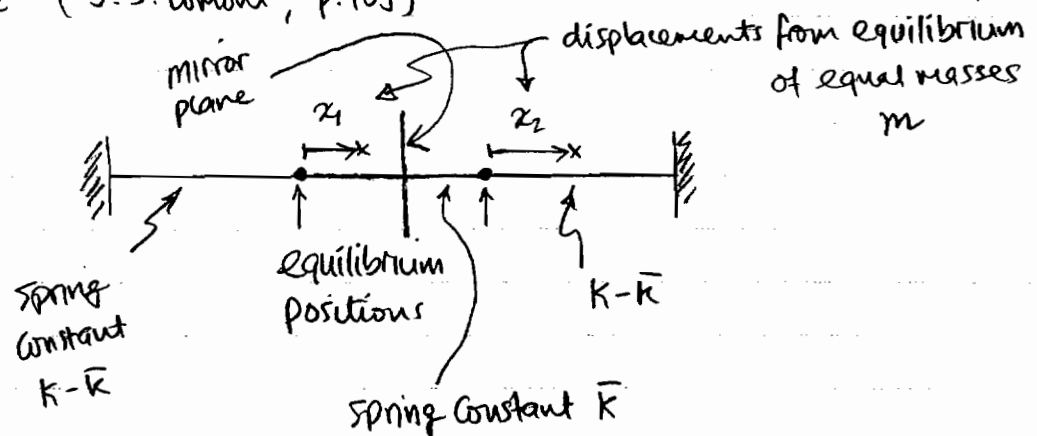 p.105)
mirror
plane
displacements from equilibrium
of equal masses
m
x₁
x₂
equilibrium
positions
spring
constant
K-K̄
K-K̄
spring constant K̄